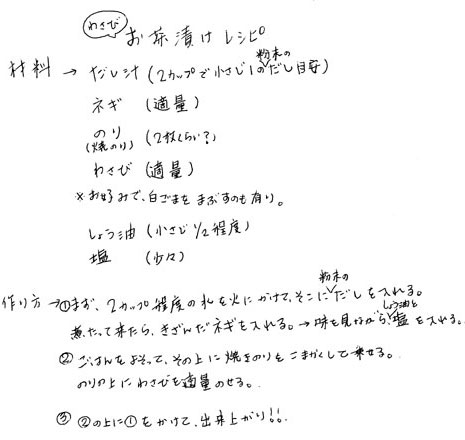 わさび お茶漬けレシピ
材料 → だし汁 (2カップで小さじ1の粉末のだし目安)
ネギ (適量)
のり (焼のり) (2枚くらい?)
わさび (適量)
※お好みで、白ごまをまぶすのも有り。
しょう油 (小さじ1/2程度)
塩 (少々)
作り方 → ①まず、2カップ程度の水を火にかけて、そこに粉末のだしを入れる。
煮たって来たら、きざんだネギを入れる。→味を見ながら、しょう油と塩を入れる。
② ごはんをよそって、その上に焼きのりをこまかくして乗せる。
のりの上にわさびを適量のせる。
③ ②の上に①をかけて、出来上がり!!